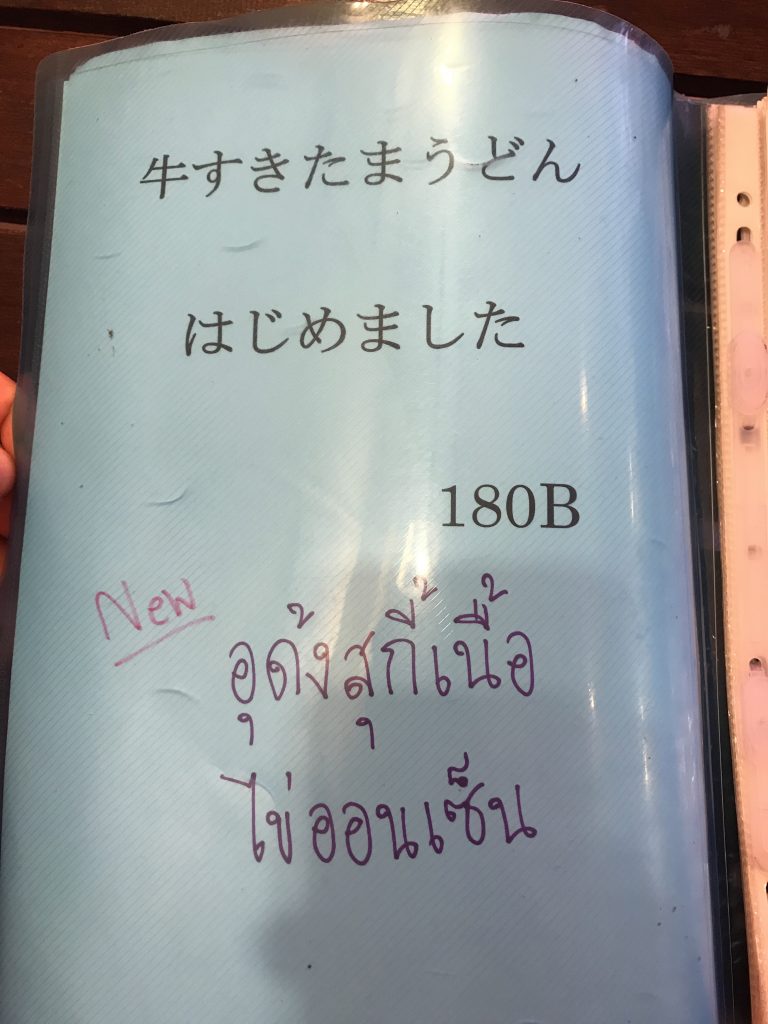 牛すきたまうどん
はじめました
180B
New
อุด้งสุกี้เนื้อ
ไข่ออนเซ็น